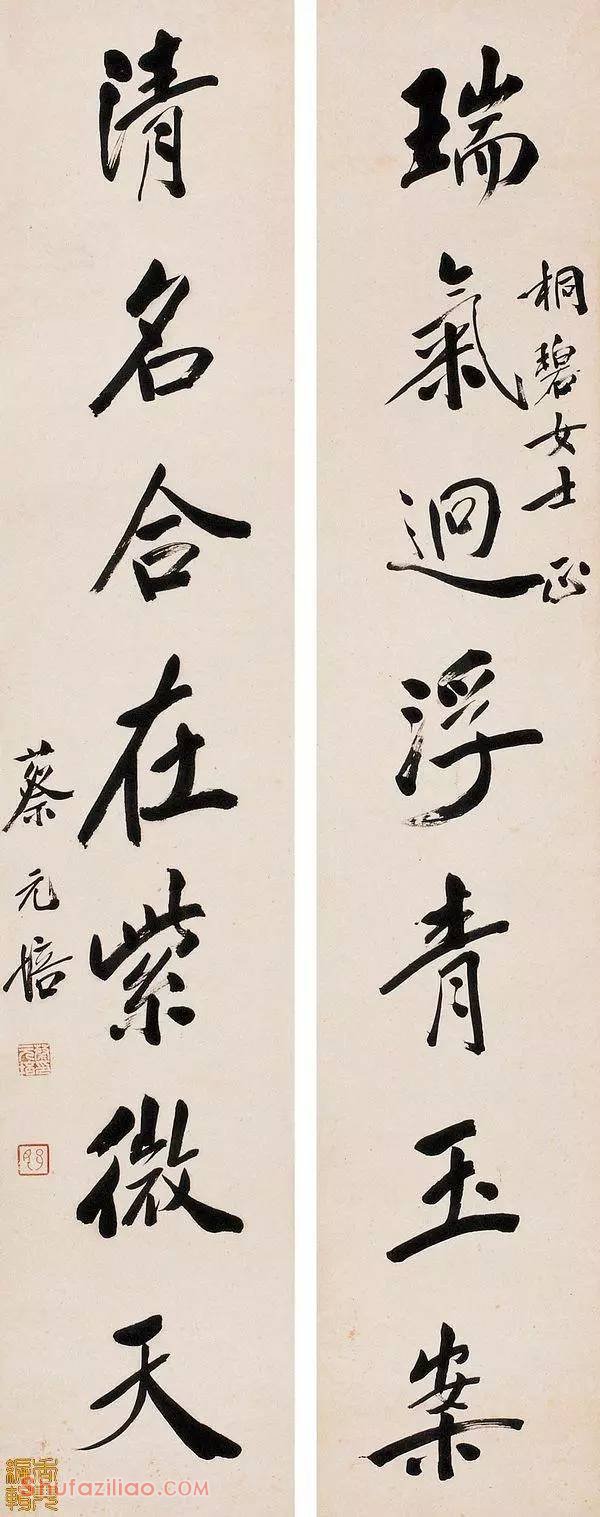 桐碧女士正
瑞氣迥浮青玉案
清名合在紫微天
蔡元培
Shufaziliao.COM